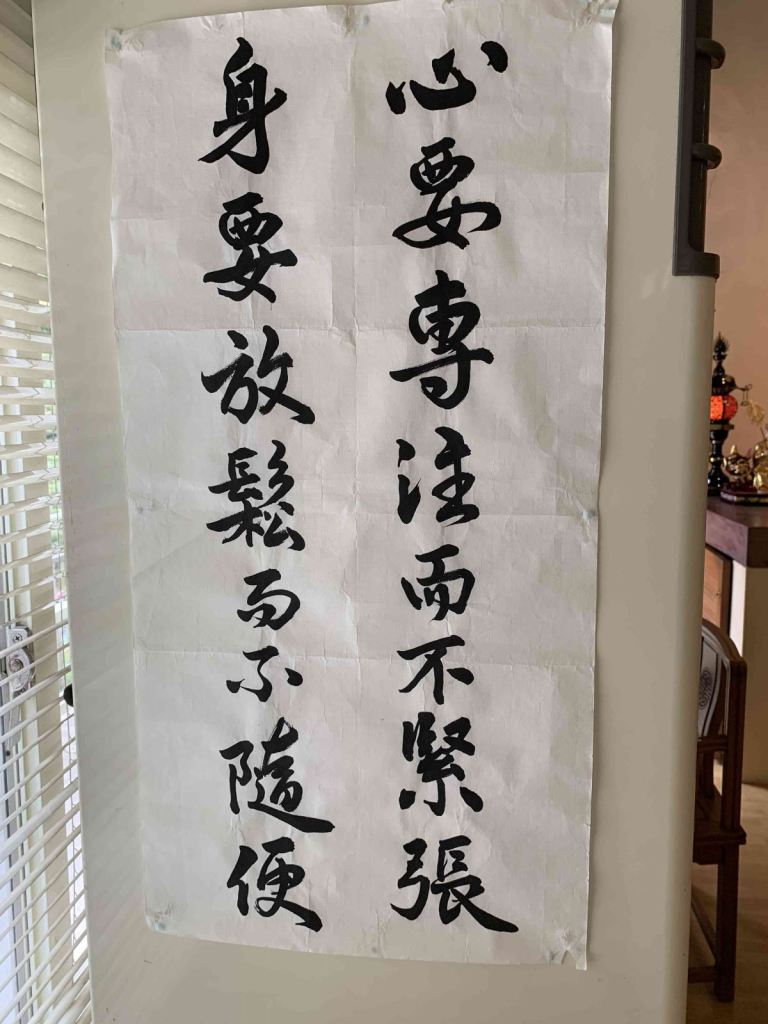 心要專注而不緊張
身要放鬆而不隨便